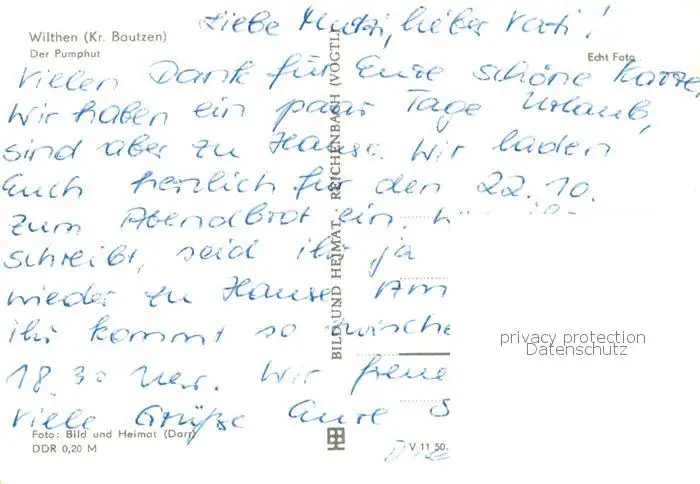 Wilthen (Kr. Bautzen)
Der Pumphut
Echt Foto
Liebe Mutti, lieber Vati!
Vielen Dank für Eure schöne Karte,
wir haben ein paar Tage Urlaub,
sind aber zu Hause. Wir laden
Euch herzlich für den 22.10.
zum Abendbrot ein.
schreibt, seid ihr ja
wieder zu Hause. Am
ihr kommt so zwische
18.30 Uhr. Wir freue
viele Grüße Eure S
BILD UND HEIMAT REICHENBACH (VOGTL)
Foto: Bild und Heimat (Darr)
DDR 0,20 M
V 11 50
privacy protection
Datenschutz